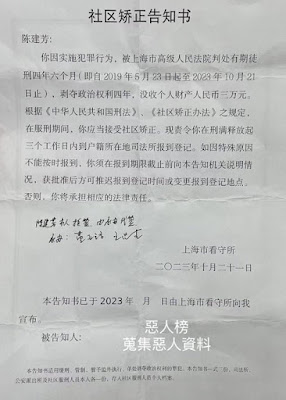 社区矫正告知书
陈建芳:
你因实施犯罪行为,被上海市高级人民法院判处有期徒
刑四年六个月(即自2019年5月23日起至2023年10月21
日止),剥夺政治权利四年,没收个人财产人民币三万元。
根据《中华人民共和国刑法》、《社区矫正办法》之规定,
在服刑期间,你应当接受社区矫正。现责令你在刑满释放起
三个工作日内到户籍所在地司法所报到登记。如因特殊原因
不能按时报到,你须在报到期限截止前向本告知机关说明情
况,获批准后方可推迟报到登记时间或变更报到登记地点,
否则,你将承担相应的法律责任。
陈建芳
上海市看守所
二〇二三年十月二十一日
本告知书已于2023年 月 日由上海市看守所向我
宣布。
被告知人:
惡人榜
蒐集惡人資料